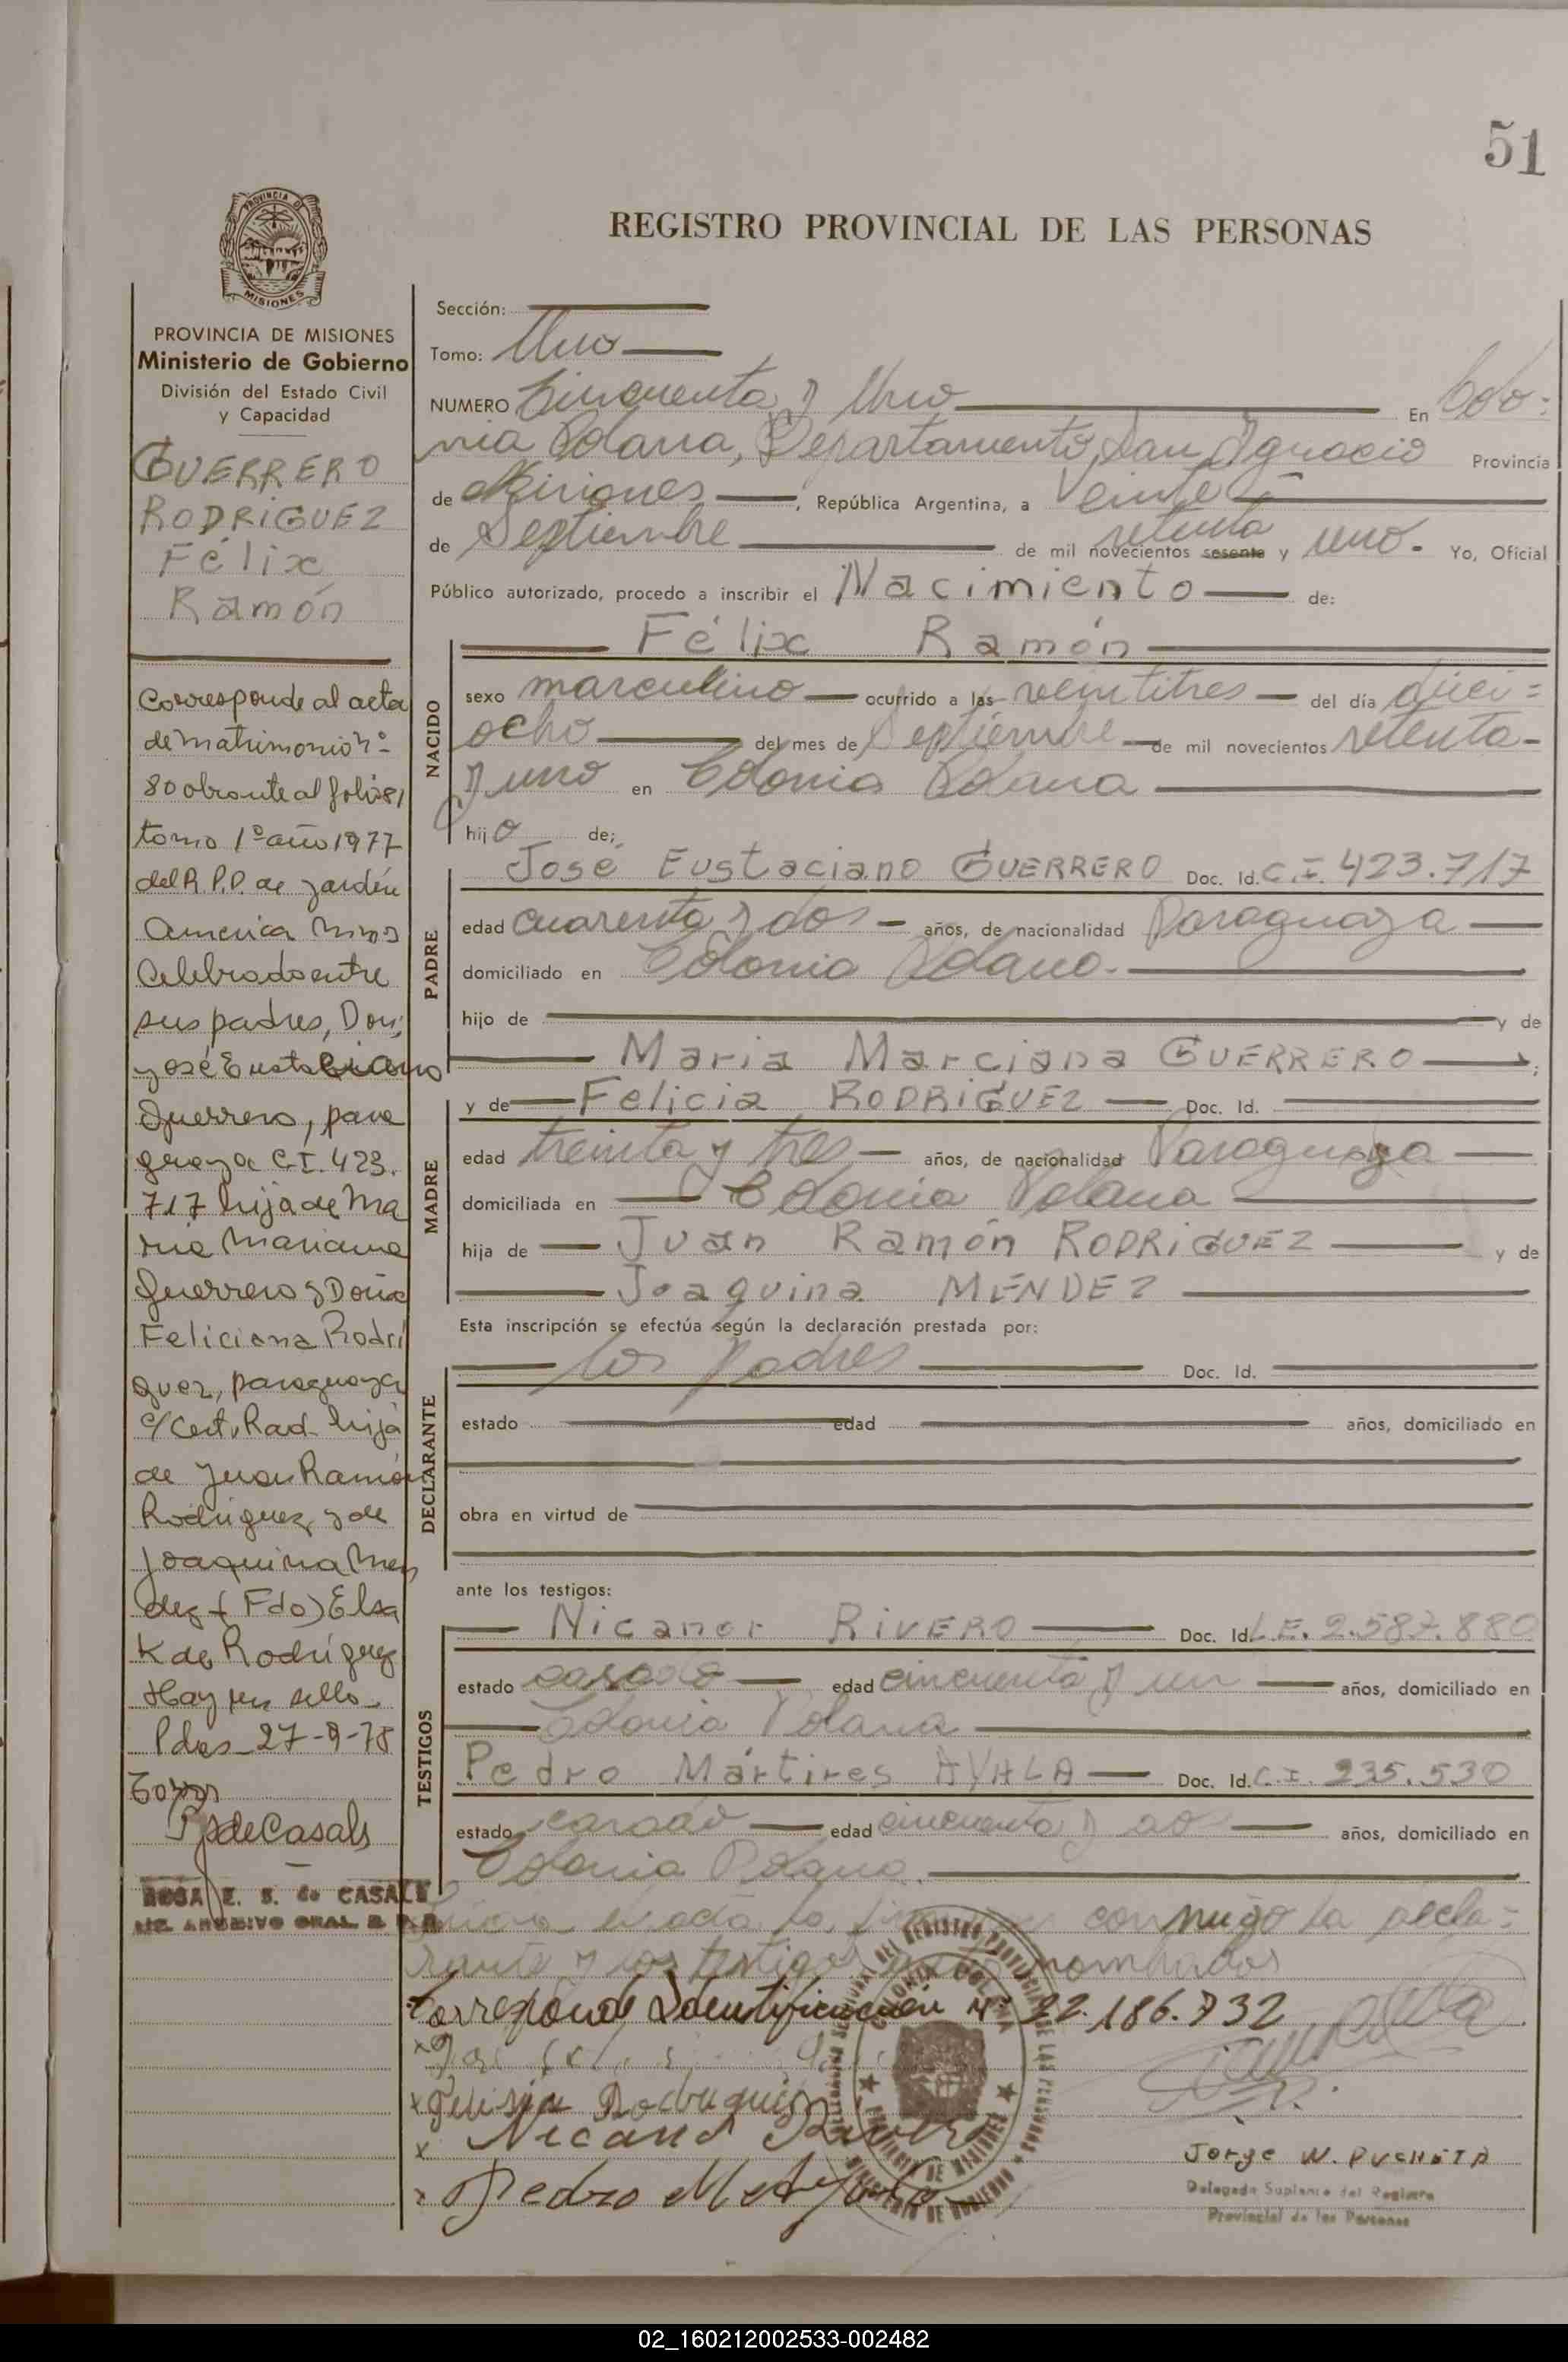 51
PROVINCIA DE
MISIONES
REGISTRO PROVINCIAL DE LAS PERSONAS
PROVINCIA DE MISIONES
Ministerio de Gobierno
División del Estado Civil
y Capacidad
GUERRERO
RODRIGUEZ
Félix
Ramón
Corresponde al acta
de matrimonio nº
80 obrante al folio 81
tomo 1º año 1977
del R.P.P. de Jardín
America Mnes
Celebrado entre
sus padres, Don
José Eustaciano
Guerrero, para
guaya C.I. 423.
717 hijo de Ma
ria Marciana
Guerrero y Doña
Feliciana Rodri
guez, paraguaya
c/Cert. Rad. hija
de Juan Ramón
Rodriguez y de
Joaquina Men
dez (Fdo) Elsa
K de Rodriguez
Hay un sello
Pdas 27-9-78
RdeCasals
ROSA E. S. de CASALS
Sección:
Tomo: Uno
NUMERO Cincuenta y Uno En Colo=
nia Polana, Departamento San Ignacio Provincia
de Misiones, República Argentina, a Veinte
de Septiembre de mil novecientos sesenta setenta y uno. Yo, Oficial
Público autorizado, procedo a inscribir el Nacimiento de:
NACIDO
Félix Ramón
sexo masculino ocurrido a las veintitres del día dieci=
ocho del mes de Septiembre de mil novecientos setenta
y uno en Colonia Polana
hijo de;
PADRE
José Eustaciano GUERRERO Doc. Id. C.I. 423.717
edad cuarenta y dos años, de nacionalidad Paraguaya
domiciliado en Colonia Polana.
hijo de y de
Maria Marciana GUERRERO;
MADRE
y de Felicia RODRIGUEZ Doc. Id.
edad treinta y tres años, de nacionalidad Paraguaya
domiciliada en Colonia Polana
hija de Juan Ramón RODRIGUEZ y de
Joaquina MENDEZ
Esta inscripción se efectúa según la declaración prestada por:
DECLARANTE
los padres Doc. Id.
estado edad años, domiciliado en
obra en virtud de
ante los testigos:
TESTIGOS
Nicanor RIVERO Doc. Id. L.E. 2.587.880
estado casado edad cincuenta y un años, domiciliado en
Colonia Polana
Pedro Mártires AYALA Doc. Id. C.I. 235.530
estado casado edad cincuenta y años, domiciliado en
Colonia Polana.
acta la conmigo la decla=
rante y los testigos nombrados
Corresponde Identificación nº 22.186.732
Felisia Rodriguez
Nicanor Rivero
Pedro M Ayala
Jorge W. PUCHETA
Delegado Suplente del Registro
Provincial de las Personas
02_160212002533-002482